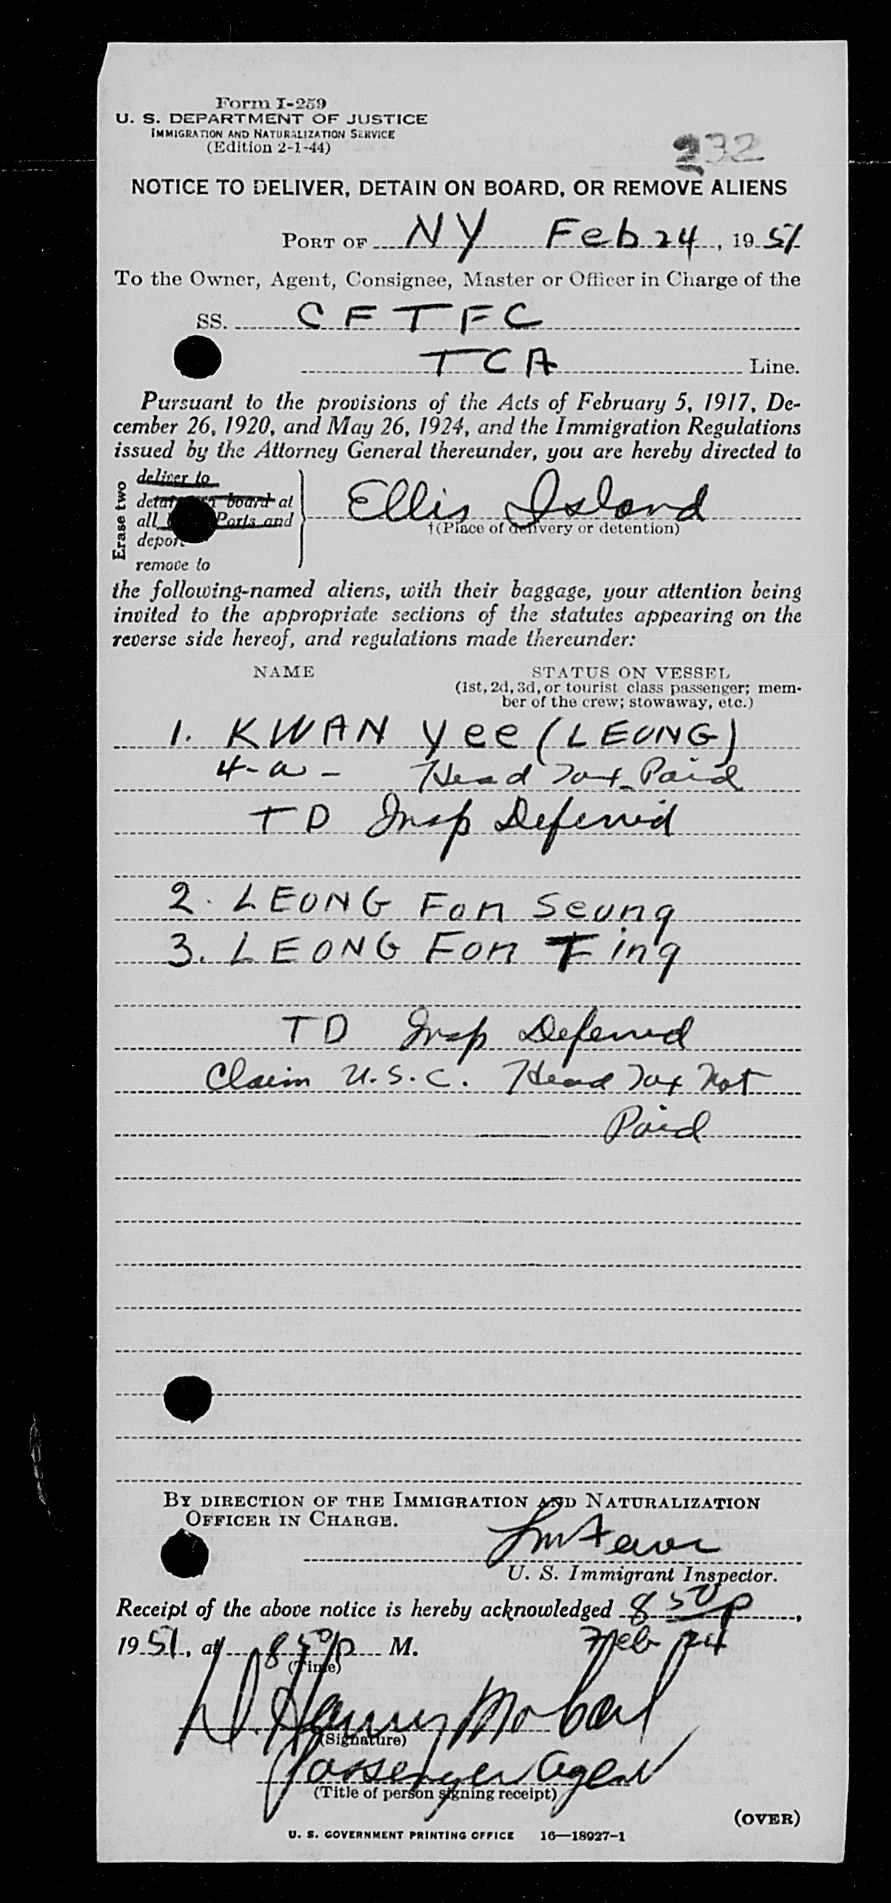 Form I-259
U. S. DEPARTMENT OF JUSTICE
IMMIGRATION AND NATURALIZATION SERVICE
(Edition 2-1-44)
232
NOTICE TO DELIVER, DETAIN ON BOARD, OR REMOVE ALIENS
PORT OF NY Feb 24, 1951
To the Owner, Agent, Consignee, Master or Officer in Charge of the
SS. CFTFC
TCA Line.
Pursuant to the provisions of the Acts of February 5, 1917, De-
cember 26, 1920, and May 26, 1924, and the Immigration Regulations
issued by the Attorney General thereunder, you are hereby directed to
Erase two
deliver to
board at
all Ports and
remove to
Ellis Island
†(Place of delivery or detention)
the following-named aliens, with their baggage, your attention being
invited to the appropriate sections of the statutes appearing on the
reverse side hereof, and regulations made thereunder:
NAME STATUS ON VESSEL
(1st, 2d, 3d, or tourist class passenger; mem-
ber of the crew; stowaway, etc.)
1. KWAN Yee (LEONG)
4-a- Head Tax Paid
TD Insp Deferred
2. LEONG Fon Seong
3. LEONG Fon Fing
TD Insp Deferred
Claim U.S.C. Head Tax Not
Paid
BY DIRECTION OF THE IMMIGRATION AND NATURALIZATION
OFFICER IN CHARGE.
U. S. Immigrant Inspector.
Receipt of the above notice is hereby acknowledged 8 50 p,
Feb 24
1951, at 8 50 p M.
(Time)
Harry
(Signature)
Passenger Agent
(Title of person signing receipt)
(OVER)
U. S. GOVERNMENT PRINTING OFFICE 16—18927-1